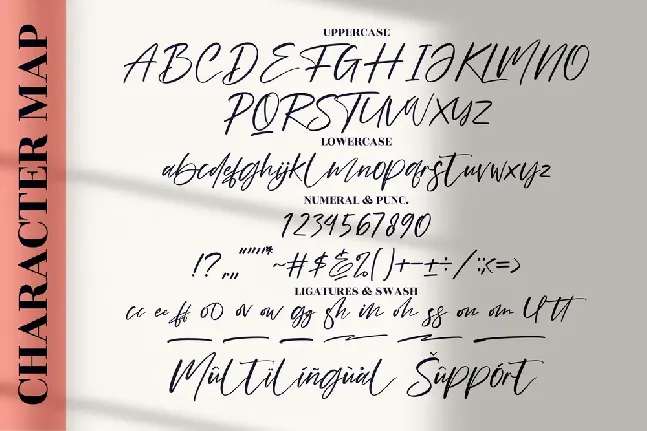 CHARACTER MAP
UPPERCASE
ABCDEFGHIJKLMNO
PQRSTUVWXYZ
LOWERCASE
abcdefghijklmnopqrstuvwxyz
NUMERAL & PUNC.
1234567890
!?,,""''"*~#$&%()+-±÷/:;<=>
LIGATURES & SWASH
cc ee ff oo ov ow gg sh in oh ss on om ll tt
Mûltïlíñgùàl Šûppórt